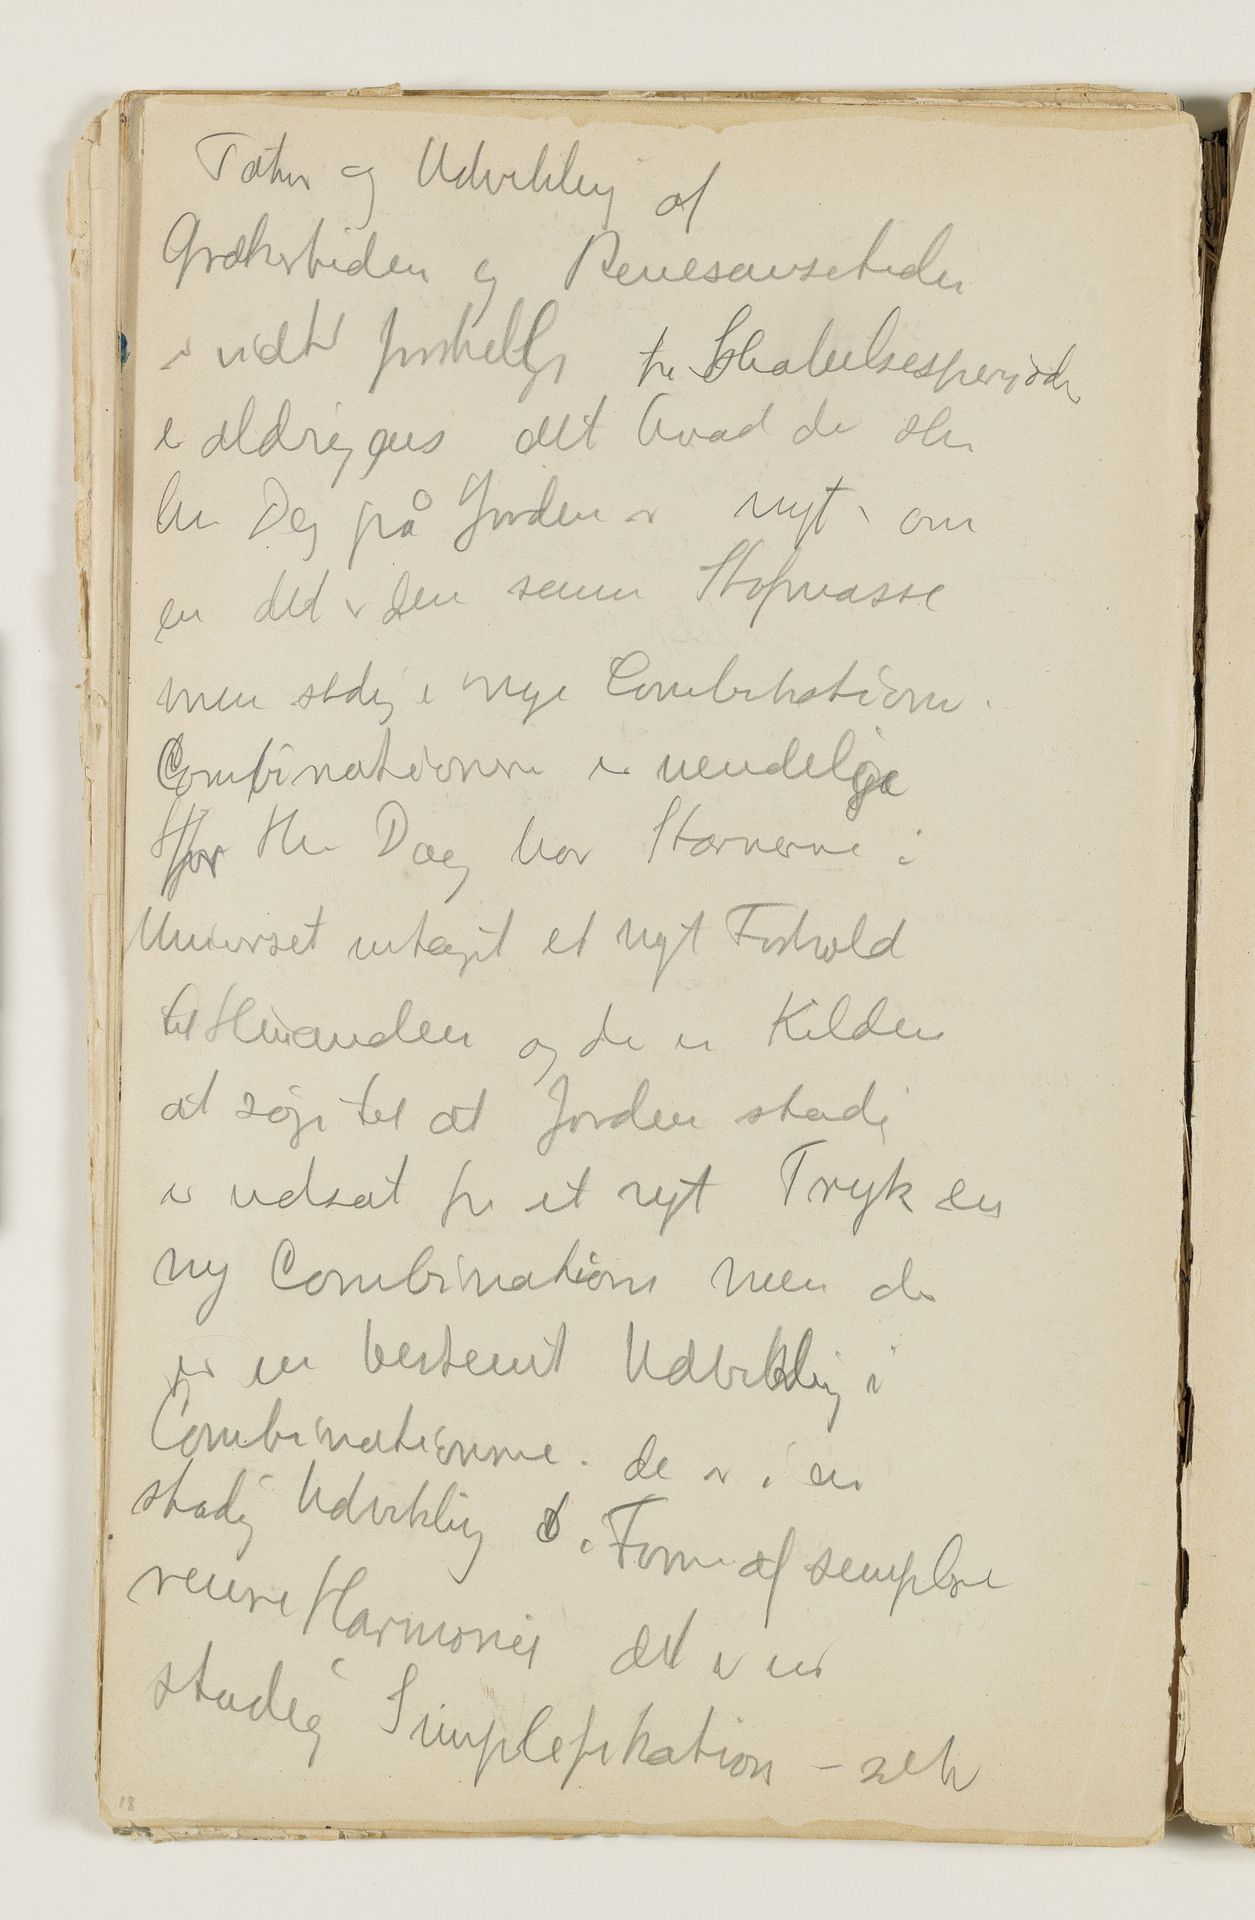 Tanker og Udvikling af
Grækertiden og Renesansetiden
er vidt forskellig fra Skabelsesperiode
er aldrig ens alt hvad der sker
hver Dag på Jorden er nyt – om
en det er den samme Stofmasse
men stadig i nye Combinationer.
Combinationerne er uendelige
Hver Dag har Stjernerne i
Universet intaget et nyt Forhold
til Hinanden og der er Kilden
at søge til at Jorden stadig
er udsat for et nyt Tryk en
ny Combination men der
er en bestemt Udvikling i
Combinationerne. de er i en
stadig Udvikling i Form af simplere
renere Harmonier det er en
stadig Simplefikation – selv
18